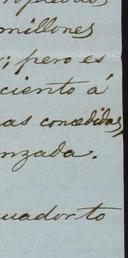 millones
; pero es
ciento á
as concedidas,
nzada.
uador to